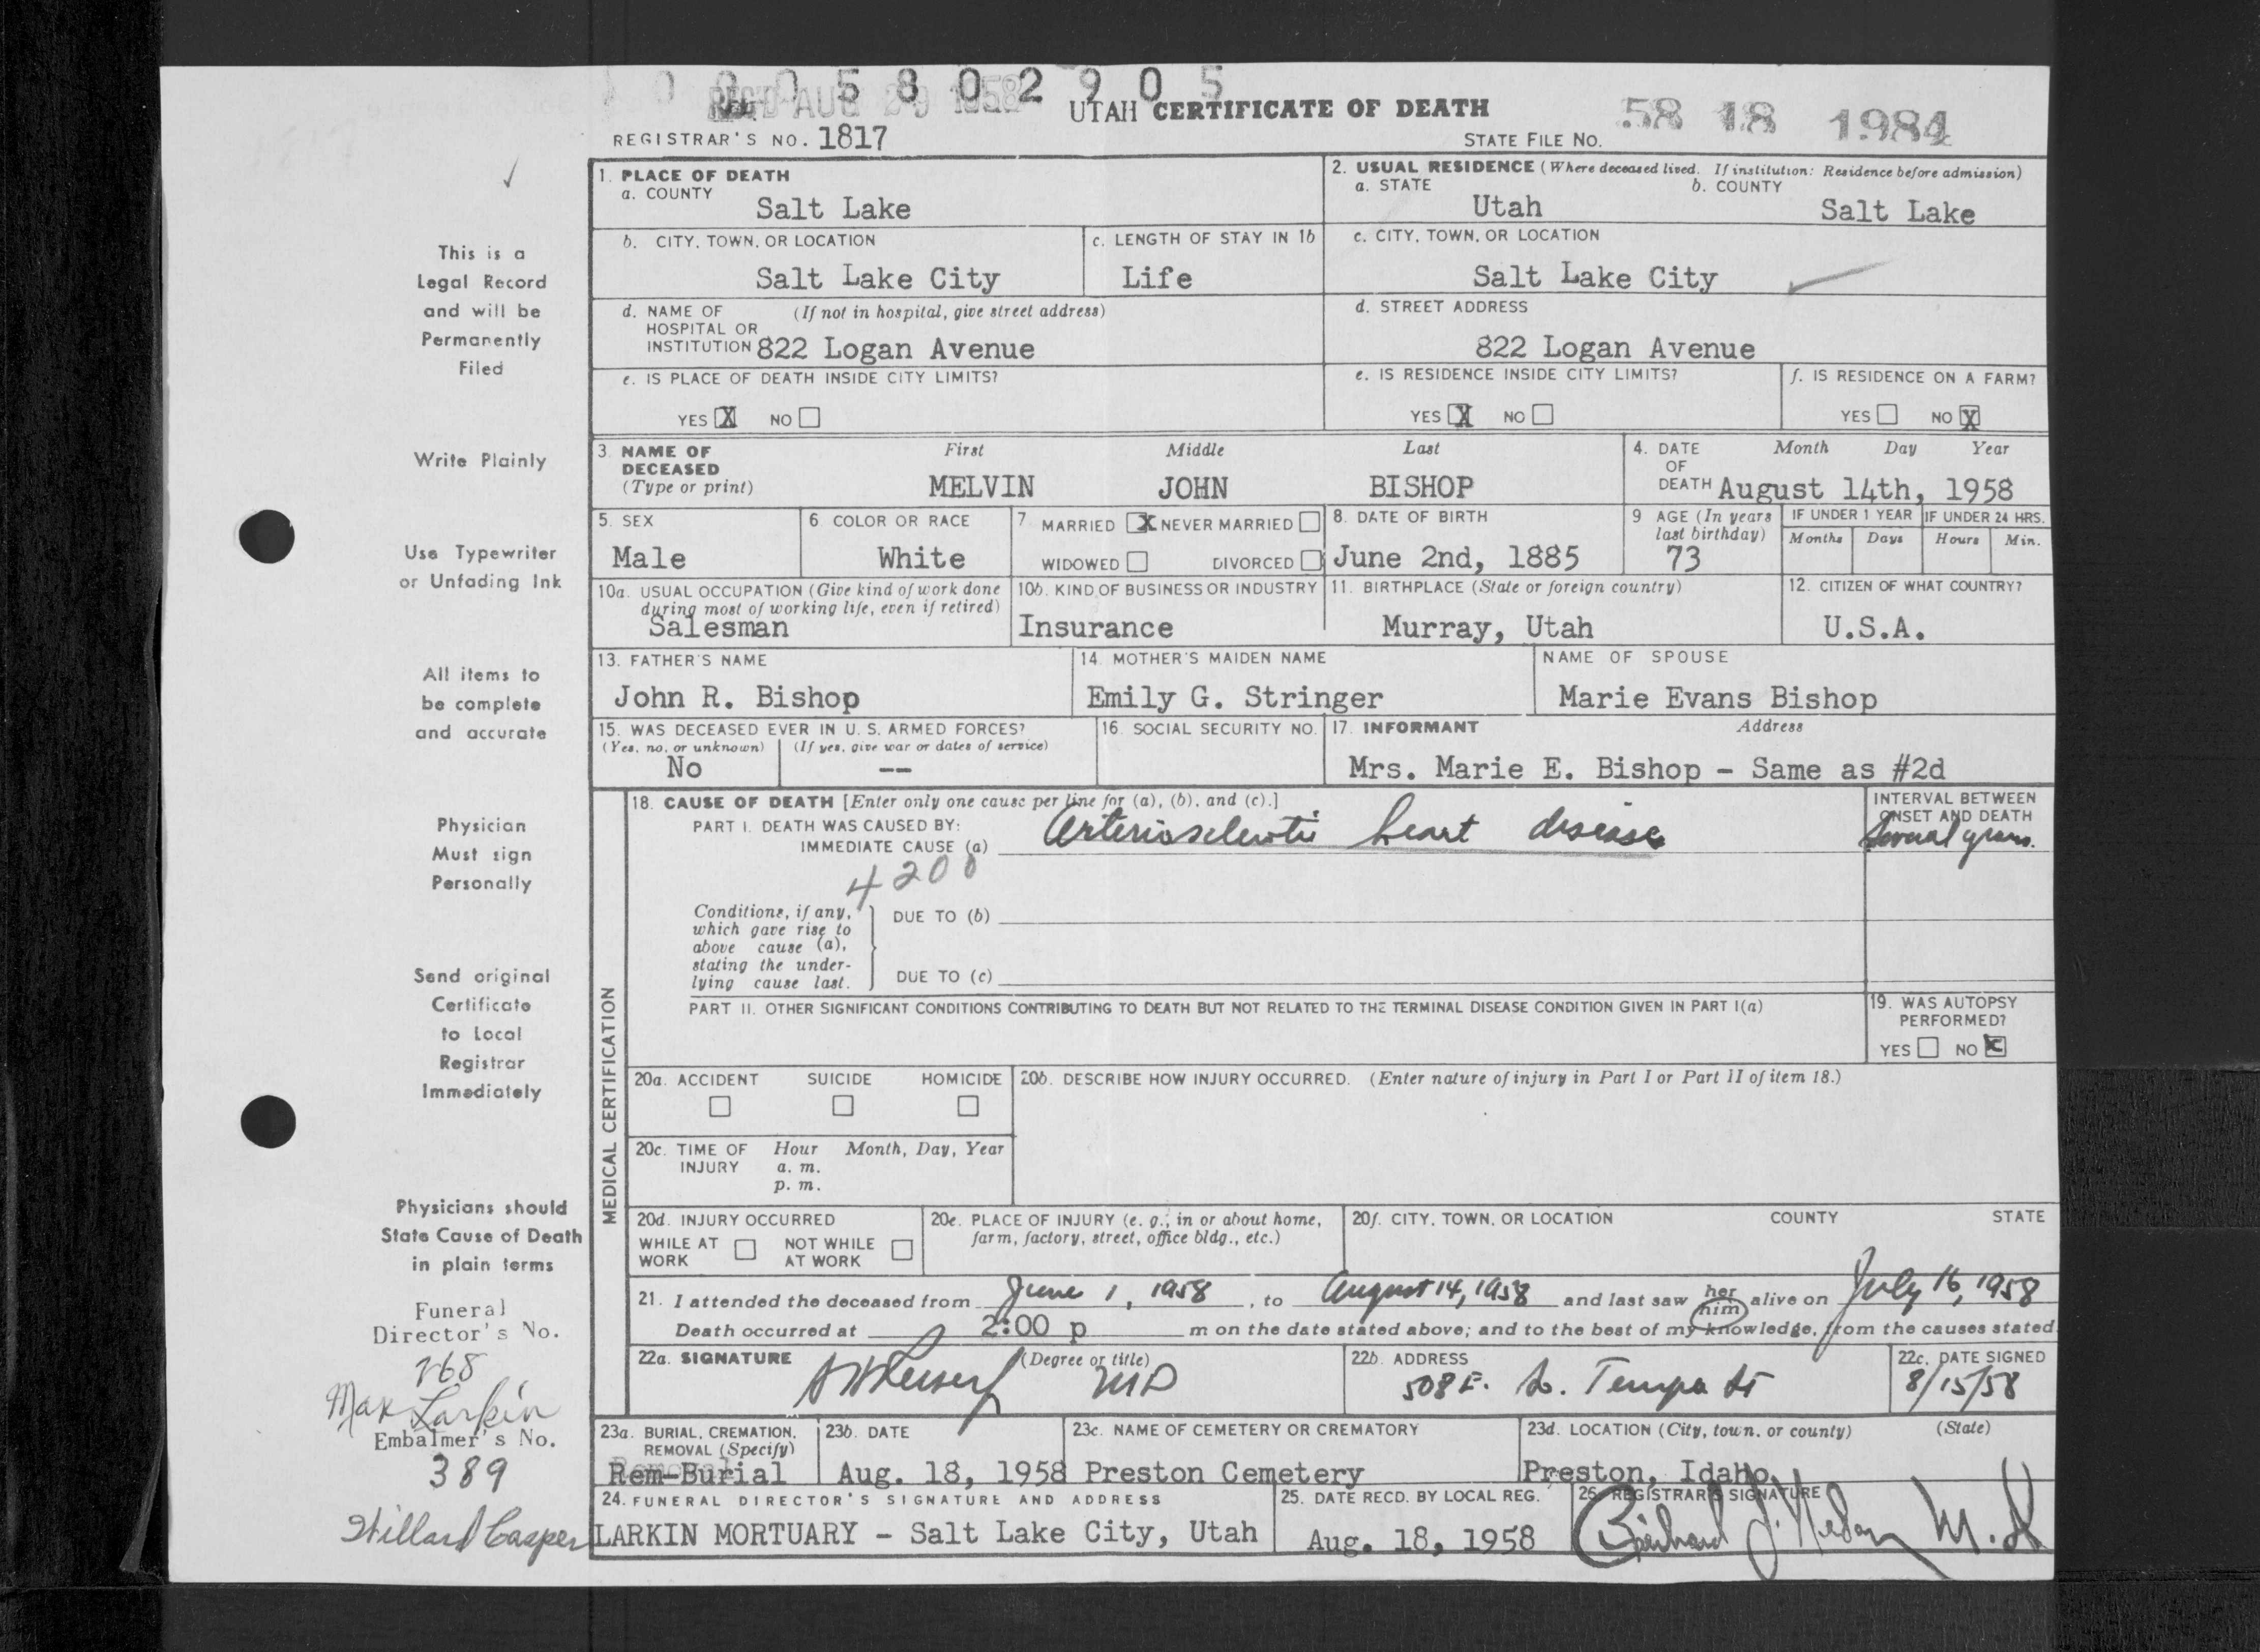 0 0 0 5 8 0 2 9 0 5
REC'D AUG 29 1958
UTAH CERTIFICATE OF DEATH
58 18 1984
REGISTRAR'S NO. 1817
STATE FILE NO.
1. PLACE OF DEATH
a. COUNTY
Salt Lake
2. USUAL RESIDENCE (Where deceased lived. If institution: Residence before admission)
a. STATE
b. COUNTY
Utah
Salt Lake
b. CITY, TOWN, OR LOCATION
Salt Lake City
c. LENGTH OF STAY IN 1b
Life
c. CITY, TOWN, OR LOCATION
Salt Lake City
d. NAME OF (If not in hospital, give street address)
HOSPITAL OR
INSTITUTION 822 Logan Avenue
d. STREET ADDRESS
822 Logan Avenue
e. IS PLACE OF DEATH INSIDE CITY LIMITS?
YES X NO
e. IS RESIDENCE INSIDE CITY LIMITS?
YES X NO
f. IS RESIDENCE ON A FARM?
YES NO X
3. NAME OF
DECEASED
(Type or print)
First Middle Last
MELVIN JOHN BISHOP
4. DATE Month Day Year
OF
DEATH August 14th, 1958
5. SEX
Male
6. COLOR OR RACE
White
7. MARRIED X NEVER MARRIED
WIDOWED DIVORCED
8. DATE OF BIRTH
June 2nd, 1885
9. AGE (In years
last birthday)
73
IF UNDER 1 YEAR
Months Days
IF UNDER 24 HRS.
Hours Min.
10a. USUAL OCCUPATION (Give kind of work done
during most of working life, even if retired)
Salesman
10b. KIND OF BUSINESS OR INDUSTRY
Insurance
11. BIRTHPLACE (State or foreign country)
Murray, Utah
12. CITIZEN OF WHAT COUNTRY?
U.S.A.
13. FATHER'S NAME
John R. Bishop
14. MOTHER'S MAIDEN NAME
Emily G. Stringer
NAME OF SPOUSE
Marie Evans Bishop
15. WAS DECEASED EVER IN U. S. ARMED FORCES?
(Yes, no, or unknown) (If yes, give war or dates of service)
No --
16. SOCIAL SECURITY NO.
17. INFORMANT Address
Mrs. Marie E. Bishop - Same as #2d
MEDICAL CERTIFICATION
18. CAUSE OF DEATH [Enter only one cause per line for (a), (b), and (c).]
PART I. DEATH WAS CAUSED BY:
IMMEDIATE CAUSE (a) Arteriosclerotic heart disease
INTERVAL BETWEEN
ONSET AND DEATH
Several years.
4200
Conditions, if any,
which gave rise to
above cause (a),
stating the under-
lying cause last.
DUE TO (b)
DUE TO (c)
PART II. OTHER SIGNIFICANT CONDITIONS CONTRIBUTING TO DEATH BUT NOT RELATED TO THE TERMINAL DISEASE CONDITION GIVEN IN PART I(a)
19. WAS AUTOPSY
PERFORMED?
YES NO X
20a. ACCIDENT SUICIDE HOMICIDE
20b. DESCRIBE HOW INJURY OCCURRED. (Enter nature of injury in Part I or Part II of item 18.)
20c. TIME OF Hour Month, Day, Year
INJURY a. m.
p. m.
20d. INJURY OCCURRED
WHILE AT NOT WHILE
WORK AT WORK
20e. PLACE OF INJURY (e. g., in or about home,
farm, factory, street, office bldg., etc.)
20f. CITY, TOWN, OR LOCATION COUNTY STATE
21. I attended the deceased from June 1, 1958, to August 14, 1958 and last saw her him alive on July 16, 1958
Death occurred at 2:00 p m on the date stated above; and to the best of my knowledge, from the causes stated
22a. SIGNATURE (Degree or title)
MD
22b. ADDRESS
508 E. So. Temple St
22c. DATE SIGNED
8/15/58
23a. BURIAL, CREMATION,
REMOVAL (Specify)
Rem-Burial
23b. DATE
Aug. 18, 1958
23c. NAME OF CEMETERY OR CREMATORY
Preston Cemetery
23d. LOCATION (City, town, or county) (State)
Preston, Idaho
24. FUNERAL DIRECTOR'S SIGNATURE AND ADDRESS
LARKIN MORTUARY - Salt Lake City, Utah
25. DATE RECD. BY LOCAL REG.
Aug. 18, 1958
26. REGISTRAR'S SIGNATURE
M.D.
This is a
Legal Record
and will be
Permanently
Filed
Write Plainly
Use Typewriter
or Unfading Ink
All items to
be complete
and accurate
Physician
Must sign
Personally
Send original
Certificate
to Local
Registrar
Immediately
Physicians should
State Cause of Death
in plain terms
Funeral
Director's No.
268
Max Larkin
Embalmer's No.
389
Willard Casper